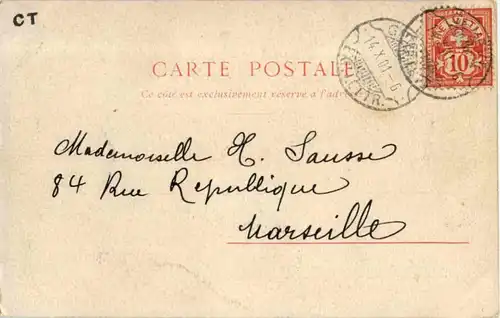 CT
CARTE POSTALE
Ce côté est exclusivement réservé à l'adresse
14.X.01–6
10
Mademoiselle H. Sausse
84 Rue République
Marseille